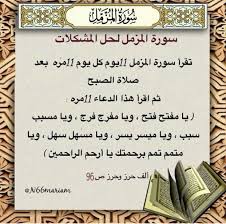 سُورَةُ المُزَّمِّل
سورة المزمل لحل المشكلات
تقرأ سورة المزمل 11يوم كل يوم 11مره بعد
صلاة الصبح
ثم اقرأ هذا الدعاء 11مره
( يا مفتح فتح ، ويا مفرج فرج ، ويا مسبب
سبب ، ويا ميسر يسر ، ويا مسهل سهل ، ويا
متمم تمم برحمتك يا أرحم الراحمين )
ألف حرز وحرز ص96
@N66mariam